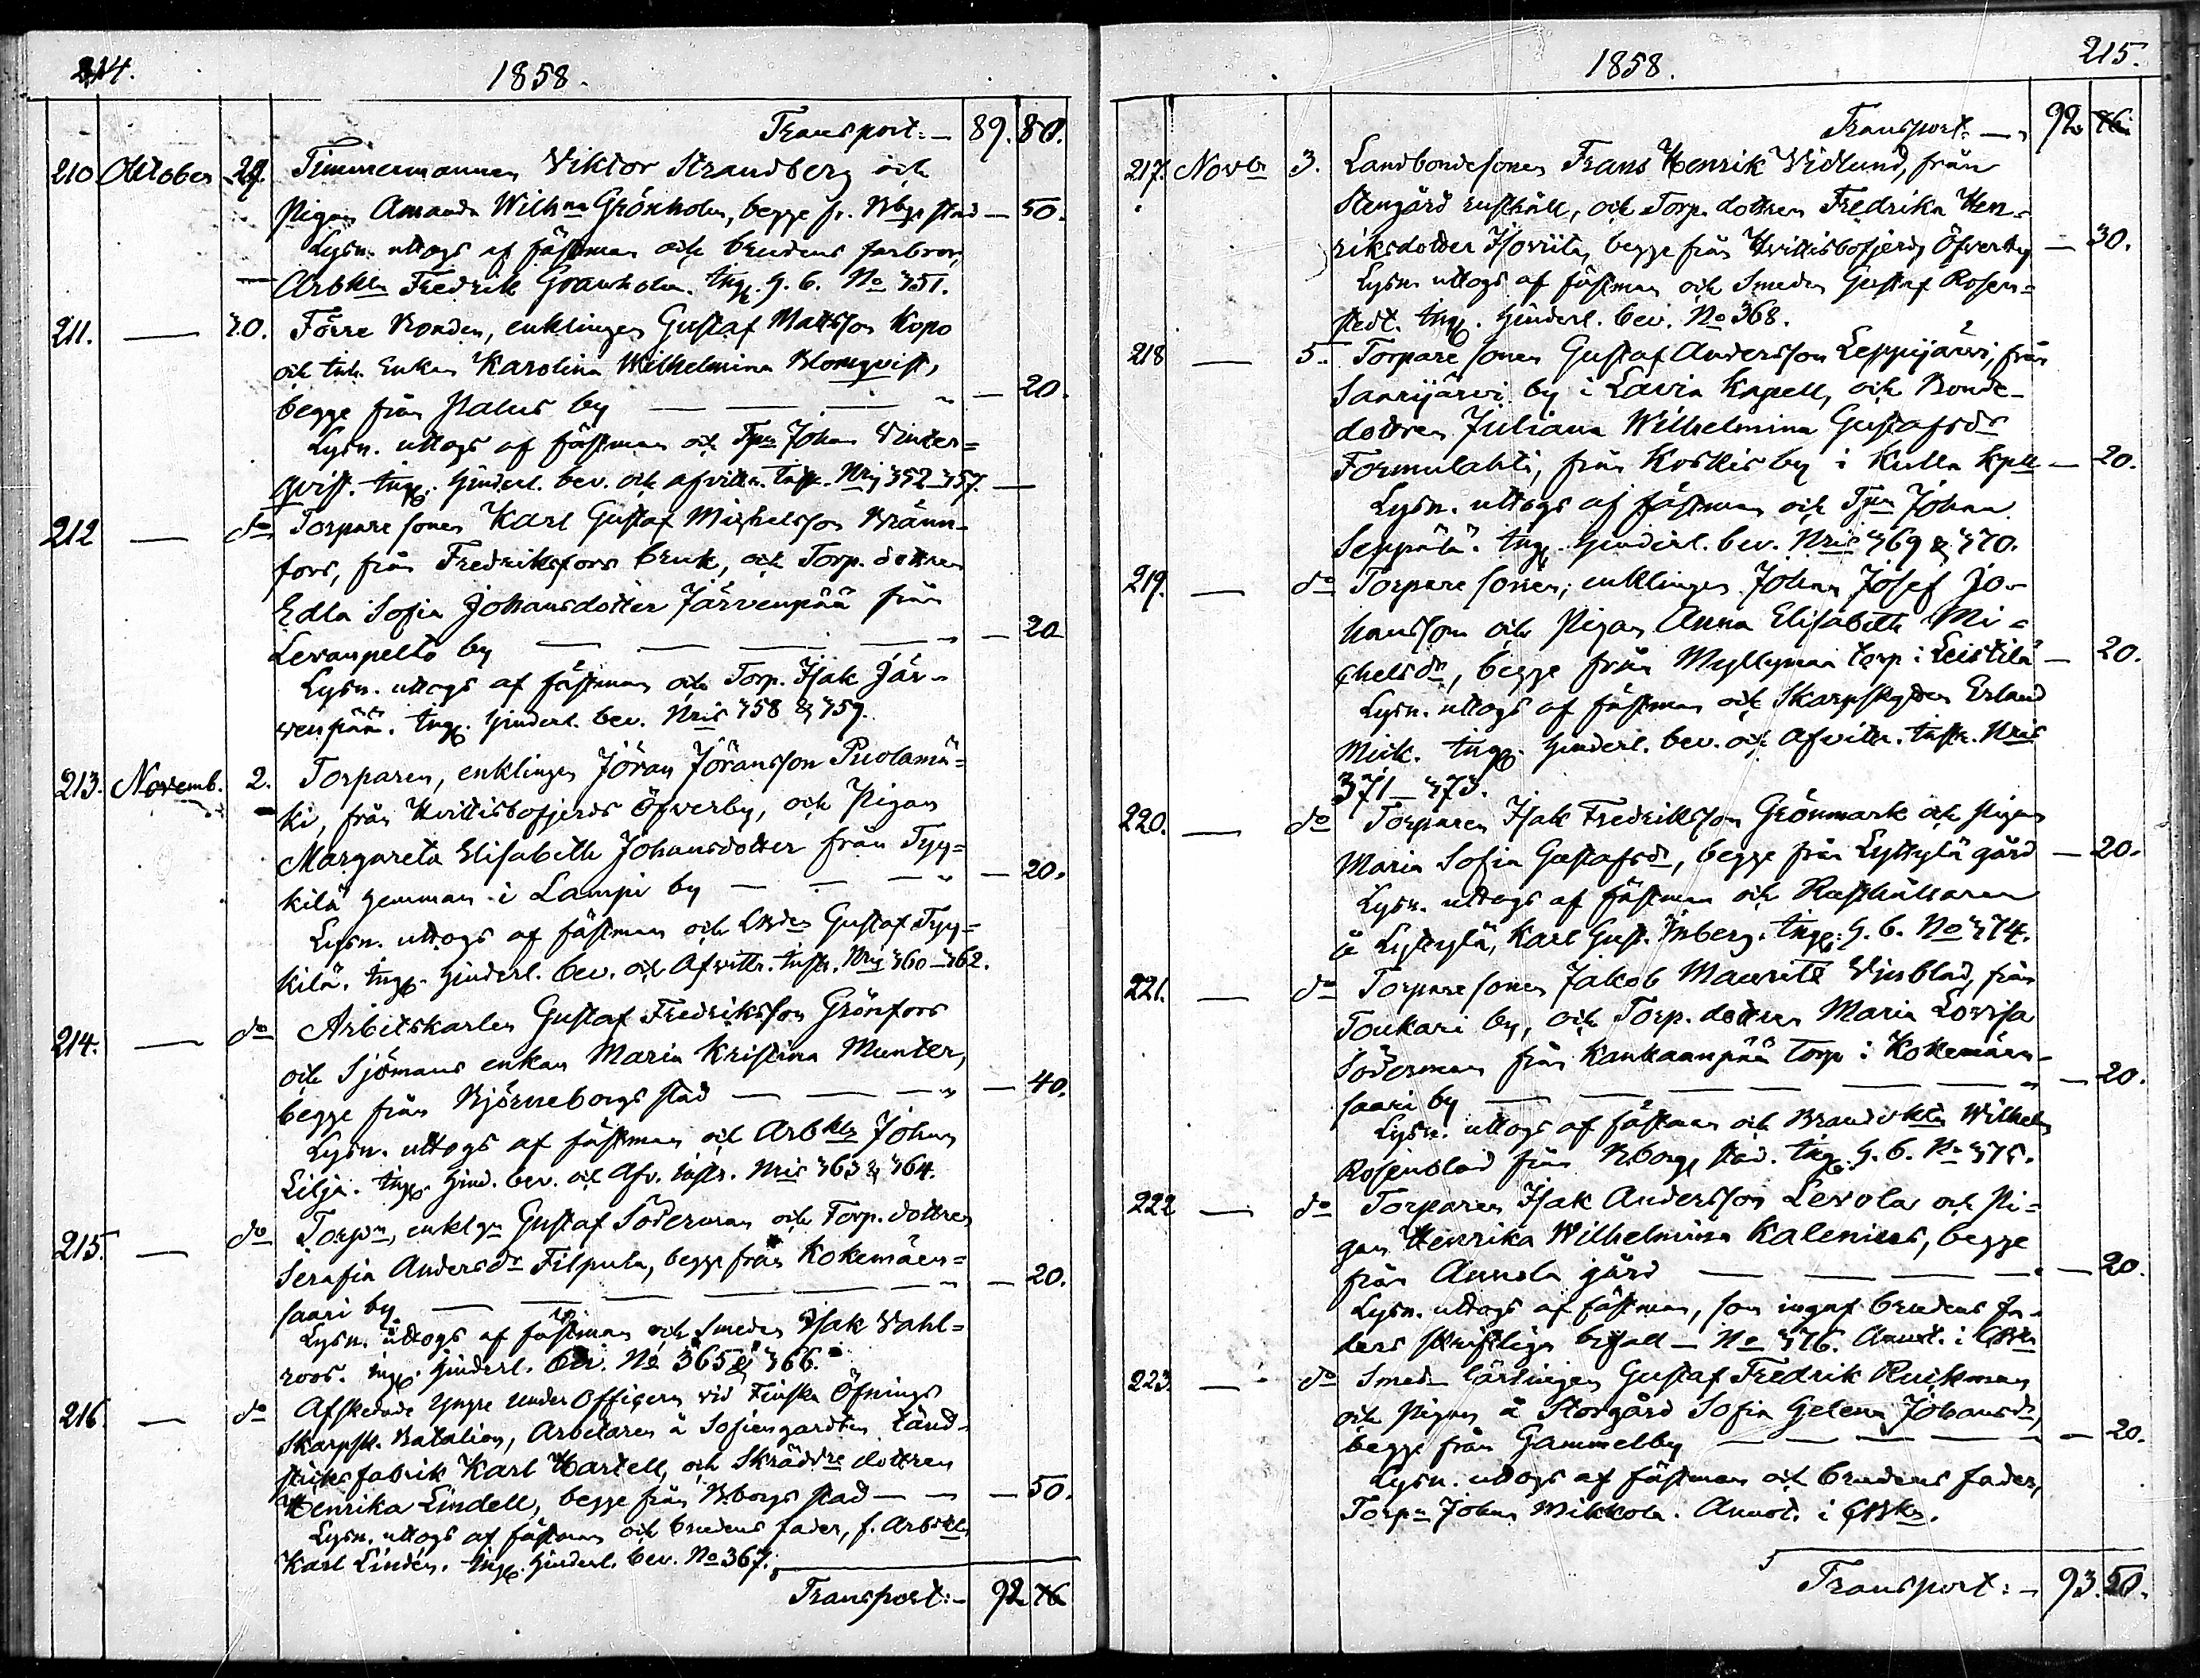 214.
1858.
Transport:— 89. 80.
210. Oktober 29. Timmermannen Viktor Strandberg och
Pigan Amanda Wilhna Grönholm, begge fr. Bbgs stad — 50.
Lysn. uttogs af fästman och brudens farbror,
Arbkln Fredrik Granholm. Ingg. H. b. No 351.
211. — 30. Förre Bonden, enklingen Gustaf Mattsson Kopo
och Enkan Karolina Wilhelmina Blomqvist,
begge från Palus by — — — " — 20.
Lysn. uttogs af fästman och Tpn Johan Winter=
qvist. Ingg. Hinderl. bev. och afvittr. instr. Nris 352–357.
212 — do Torpare sonen Karl Gustaf Michelsson Bränn-
fors, från Fredriksfors bruk, och Torp. dottren
Edla Sofia Johansdotter Järvenpää från
Levanpelto by — — — — " — 20
Lysn. uttogs af fästman och Torp. Isak Jär-
venpää. Ingg. Hinderl. bev. Nris 358 & 359.
213. Novemb. 2. Torparen, enklingen Jöran Jöransson Puolamä=
ki, från Hvittisbofjerds Öfverby, och Pigan
Margareta Elisabeth Johansdotter från Tyy=
kilä hemman i Lampi by — — — " — 20.
Lysn. uttogs af fästman och Gustaf Tyy=
kilä. Ingg. Hinderl. bev. och Afvittr. instr. Nris 360–362.
214. — do Arbetskarlen Gustaf Fredriksson Grönfors
och Sjömans enkan Maria Kristina Munter,
begge från Björneborgs stad — — — " — 40.
Lysn. uttogs af fästman och Arbkln Johan
Lilja. Ingg. Hind. bev. och Afv. instr. Nris 363 & 364.
215. — do Torpn, enklgn Gustaf Söderman och Torp. dottren
Serafia Andersdr Filpula, begge från Kokemäen=
saari by — — — — " — 20.
Lysn. uttogs af fästman och Smeden Isak Wahl=
roos. Ingg. Hinderl. bev. No 365 & 366.
216. — do Afskedade yngre Under Officern vid Finska Öfnings
Skarpsk. Bataljon, Arbetaren å Sofiengardtens tänd-
sticksfabrik Karl Hartell, och Skräddre dottren
Henrika Lindell, begge från Bborgs stad — — — 50.
Lysn. uttogs af fästman och brudens fader, f. Arbkln
Karl Lindén. Ingg. Hinderl. bev. No 367.
Transport:— 92. 76
1858.
215.
Transport:— 92. 76.
217. Novbr 3. Landbondesonen Frans Henrik Widlund, från
Stengård rusthåll, och Torp. dottren Fredrika Hen-
riksdotter Isoviita, begge från Hvittisbofjerds Öfverby — 30.
Lysn. uttogs af fästman och Smeden Gustaf Rosen=
stedt. Ingg. Hinderl. bev. No 368.
218 — 5. Torpare sonen Gustaf Andersson Leppijärvi, från
Saarijärvi by i Lavia Kapell, och Bonde-
dottren Juliana Wilhelmina Gustafsdr
Formulahti, från Koskis by i Kulla Kpll — 20.
Lysn. uttogs af fästman och Tpn Johan
Seppälä. Ingg. Hinderl. bev. Nris 369 & 370.
219. — do Torpare sonen, enklingen Johan Josef Jo-
hansson och Pigan Anna Elisabeth Mi=
chelsdr, begge från Myllymaa torp i Leistilä — 20.
Lysn. uttogs af fästman och Skarpskytten Erland
Mick. Ingg. Hinderl. bev. och Afvittr. instr. Nris
371–373.
220. — do Torparen Isak Fredriksson Grönmark och Pigan
Maria Sofia Gustafsdr, begge från Lyttylä gård — 20.
Lysn. uttogs af fästman och Rusthållaren
å Lyttylä, Karl Gust. Inberg. Ingg. H. b. No 374.
221. — do Torpare sonen Jakob Mauritz Winblad, från
Toukari by, och Torp. dottren Maria Lovisa
Söderman från Kankaanpää torp i Kokemäen-
saari by — — — — " — 20.
Lysn. uttogs af fästman och Brandvktn Wilhelm
Rosenblad från Bborgs stad. Ingg. H. b. No 375.
222 — do Torparen Isak Andersson Levola och Pi=
gan Henrika Wilhelmina Kalenius, begge
från Annola gård — — — " — 20.
Lysn. uttogs af fästman, som ingaf brudens fa-
ders skriftliga bifall — No 376. Annot. i
223. — do Smeds lärlingen Gustaf Fredrik Ruikman
och Pigan å Storgård Sofia Helena Johansdr,
begge från Gammelby — — — — 20.
Lysn. uttogs af fästman och brudens fader,
Torpn Johan Mikkola. Annot. i
Transport:— 93. 50.